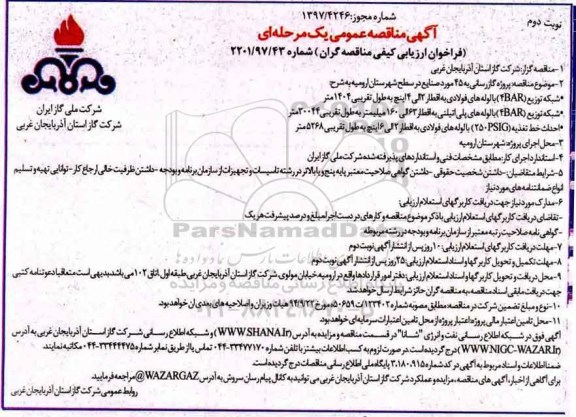 نوبت دوم
شماره مجوز: ۱۳۹۷/۴۲۴۶
آگهی مناقصه عمومی یک مرحله‌ای
(فراخوان ارزیابی کیفی مناقصه گران) شماره ۲۲۰۱/۹۷/۴۳
شرکت ملی گاز ایران
شرکت گاز استان آذربایجان غربی
۱-مناقصه گزار: شرکت گاز استان آذربایجان غربی
۲-موضوع مناقصه: پروژه گازرسانی به ۴۵ مورد صنایع در سطح شهرستان ارومیه به شرح
شبکه توزیع (۴BAR) با لوله های فولادی به اقطار ۲الی ۴ اینچ به طول تقریبی ۱۴۰۲ متر
*شبکه توزیع (۴BAR) با لوله های پلی اتیلنی به اقطار ۶۳الی ۱۶۰ میلیمتر به طول تقریبی ۲۰۰۴۴متر
*احداث خط تغذیه (۲۵۰PSIG) با لوله های فولادی به اقطار ۲الی ۶اینچ به طول تقریبی ۵۲۶۸متر
۳-محل اجرای پروژه: شهرستان ارومیه
۴-استاندارد اجرای کار: مطابق مشخصات فنی و استانداردهای پذیرفته شده شرکت ملی گاز ایران
۵-شرایط متقاضیان: -داشتن شخصیت حقوقی -داشتن گواهی صلاحیت معتبر پایه پنج و یا بالاتر در رشته تاسیسات و تجهیزات از سازمان برنامه و بودجه -داشتن ظرفیت خالی ارجاع کار -توانایی تهیه و تسلیم
انواع ضمانتنامه های مورد نیاز
۶-مدارک مورد نیاز جهت دریافت کاربرگهای استعلام ارزیابی:
-تقاضای دریافت کاربرگهای استعلام ارزیابی با ذکر موضوع مناقصه و کارهای در دست اجرا مبلغ و درصد پیشرفت هر یک
-گواهی نامه صلاحیت رتبه معتبر از سازمان برنامه و بودجه در رشته مربوطه
۷-مهلت دریافت کاربرگهای استعلام ارزیابی: ۱۰ روز پس از انتشار آگهی نوبت دوم
۸-مهلت تکمیل و تحویل کاربرگها و اسناد استعلام ارزیابی: ۲۵ روز پس از انتشار آگهی نوبت دوم
۹-محل دریافت و تحویل کاربرگها و اسناد استعلام ارزیابی: دفتر امور قراردادها واقع در ارومیه خیابان مولوی شرکت گاز استان آذربایجان غربی طبقه اول اتاق ۱۰۲می باشد بدیهی است متعاقبا دعوتنامه کتبی
جهت دریافت مابقی اسناد مناقصه به مناقصه گران حائز شرایط ارسال خواهد شد
۱۰-نوع و مبلغ تضمین شرکت در مناقصه مطابق مصوبه شماره ۱۲۳۴۰۲/ت۵۰۶۵۹ه مورخ ۹۴/۹/۲۲ هیات وزیران و اصلاحیه های بعدی آن خواهد بود.
۱۱-محل تامین اعتبار مالی پروژه: اعتبار پروژه از محل تامین اعتبارات سرمایه ای خواهد بود.
آگهی فوق در شبکه اطلاع رسانی نفت و انرژی "شانا" در قسمت مناقصه و مزایده به آدرس (WWW.SHANA.IR) و شبکه اطلاع رسانی شرکت گاز استان آذربایجان غربی به آدرس
(WWW.NIGC-WAZAR.IR) درج گردیده است. در صورت لزوم به کسب اطلاعات بیشتر با تلفن شماره ۳۳۴۷۷۱۷۰-۰۴۴ تماس و یا از طریق نمابر شماره ۳۳۴۴۴۴۷۵-۰۴۴ مکاتبه نمایند.
ضمنا اطلاعات و اسناد مربوط به آگهی در کد شماره ۳.۱۸۰.۹۱۵ پایگاه ملی اطلاع رسانی مناقصات درج گردیده است.
برای آگاهی از اخبار، آگهی های مناقصه، مزایده و عملکرد شرکت گاز استان آذربایجان غربی می توانید به کانال پیام رسان سروش به آدرس WAZARGAZ@ مراجعه فرمایید.
روابط عمومی شرکت گاز استان آذربایجان غربی